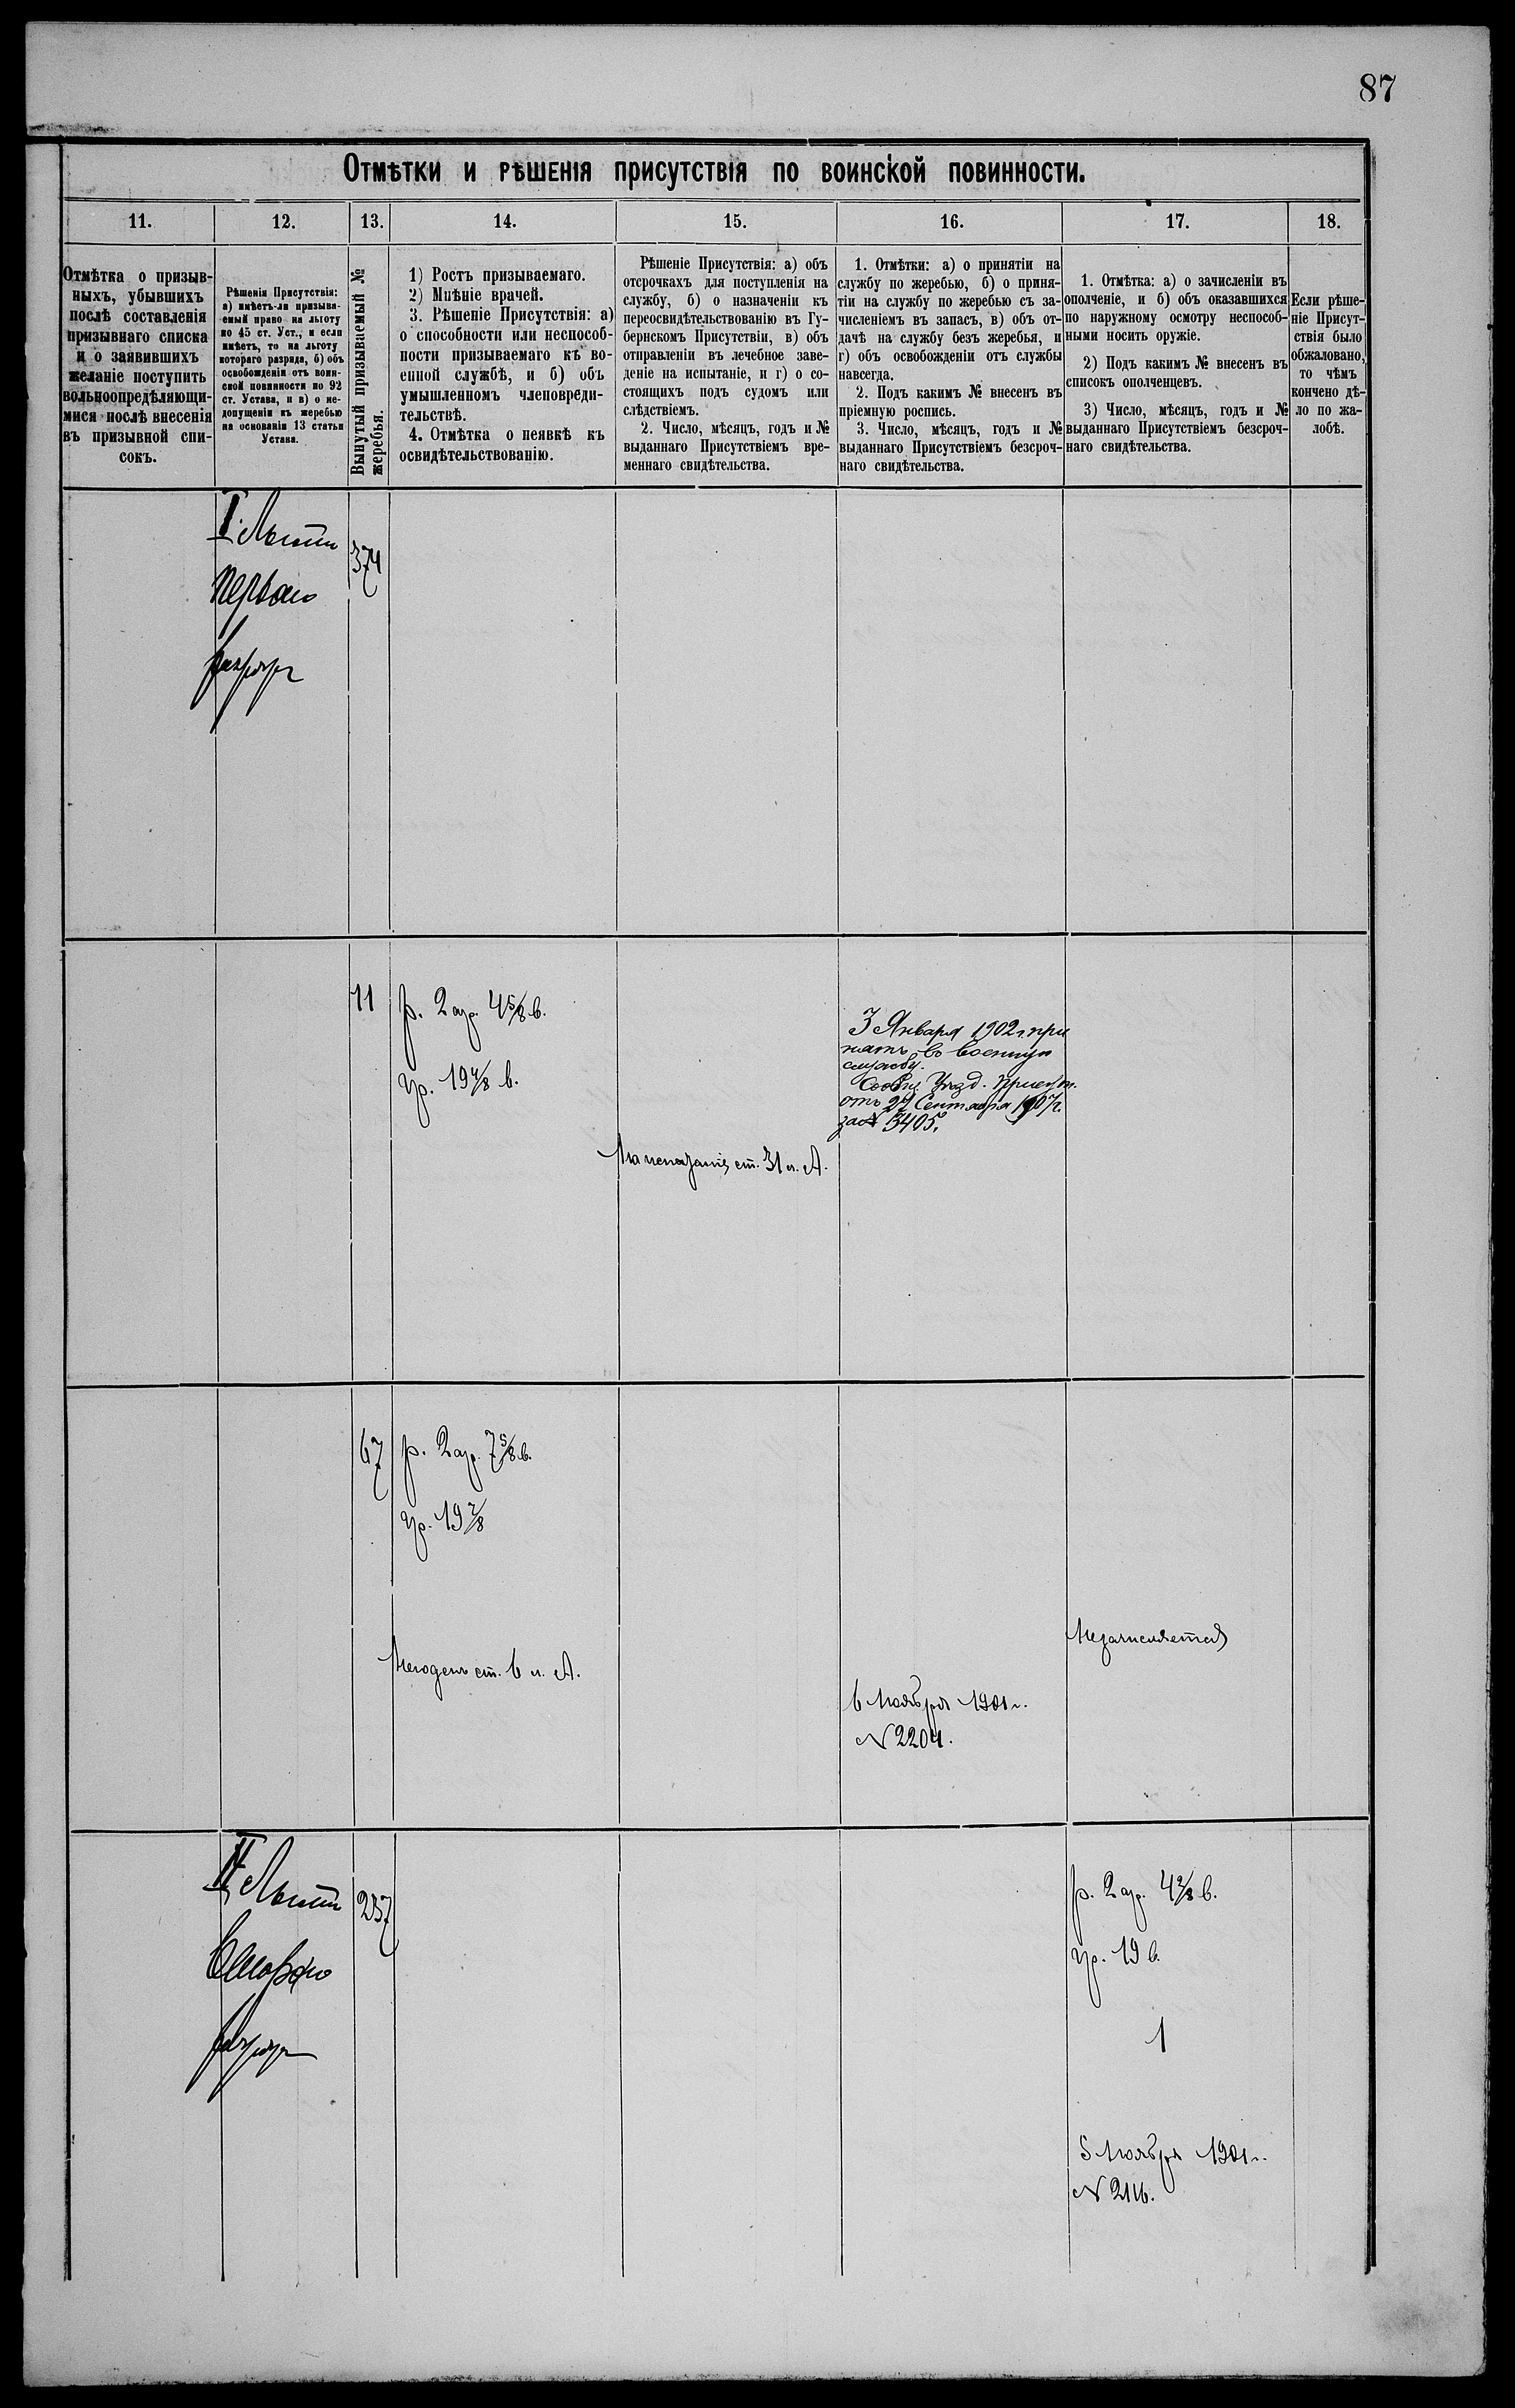 87
Отмѣтки и рѣшенія присутствія по воинской повинности.
11.
12.
13.
14.
15.
16.
17.
18.
Отмѣтка о призыв-
ныхъ, убывшихъ
послѣ составленія
призывнаго списка
и о заявившихъ
желаніе поступить
вольноопредѣляющи-
мися послѣ внесенія
въ призывной спи-
сокъ.
Рѣшенія Присутствія:
а) имѣетъ-ли призыва-
емый право на льготу
по 45 ст. Уст., и если
имѣетъ, то на льготу
котораго разряда, б) объ
освобожденіи отъ воин-
ской повинности по 92
ст. Устава, и в) о не-
допущеніи къ жеребью
на основаніи 13 статьи
Устава.
Вынутый призываемый №
жеребья.
1) Ростъ призываемаго.
2) Мнѣніе врачей.
3. Рѣшеніе Присутствія: а)
о способности или неспособ-
ности призываемаго къ во-
енной службѣ, и б) объ
умышленномъ членовреди-
тельствѣ.
4. Отмѣтка о неявкѣ къ
освидѣтельствованію.
Рѣшеніе Присутствія: а) объ
отсрочкахъ для поступленія на
службу, б) о назначеніи къ
переосвидѣтельствованію въ Гу-
бернскомъ Присутствіи, в) объ
отправленіи въ лечебное заве-
деніе на испытаніе, и г) о со-
стоящихъ подъ судомъ или
слѣдствіемъ.
2. Число, мѣсяцъ, годъ и №
выданнаго Присутствіемъ вре-
меннаго свидѣтельства.
1. Отмѣтки: а) о принятіи на
службу по жеребью, б) о приня-
тіи на службу по жеребью съ за-
численіемъ въ запасъ, в) объ от-
дачѣ на службу безъ жеребья, и
г) объ освобожденіи отъ службы
навсегда.
2. Подъ какимъ № внесенъ въ
пріемную роспись.
3. Число, мѣсяцъ, годъ и №
выданнаго Присутствіемъ безсроч-
наго свидѣтельства.
1. Отмѣтка: а) о зачисленіи въ
ополченіе, и б) объ оказавшихся
по наружному осмотру неспособ-
ными носить оружіе.
2) Подъ какимъ № внесенъ въ
списокъ ополченцевъ.
3) Число, мѣсяцъ, годъ и №
выданнаго Присутствіемъ безсроч-
наго свидѣтельства.
Если рѣше-
ніе Присут-
ствія было
обжаловано,
то чѣмъ
кончено дѣ-
ло по жа-
лобѣ.
I. Льготы
перваго
разряда
374
11
р. 2 ар. 4 5/8 в.
гр. 19 4/8 в.
На испытаніе ст. 31 л. А.
3 Января 1902 г. при
нятъ въ военную
службу.
Сообщ. Уезд. Присут.
отъ 24 Сентября 1907 г.
за № 3405.
67
р. 2 ар. 7 5/8 в.
гр. 19 2/8
Негоденъ ст. 6 л. А.
6 Ноября 1901 г.
№ 2204.
Незачисляется
II Льготы
Втораго
разряда
237
р. 2 ар. 4 2/8 в.
гр. 19 в.
1
5 Ноября 1901 г.
№ 2116.